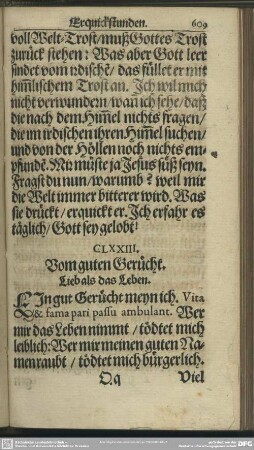 Erquickstunden. 609
voll Welt-Trost/ muß Gottes Trost
zurück stehen: Was aber Gott leer
findet vom irdischē/ das füllet er mit
him̄lischem Trost an. Ich wil mich
nicht verwundern/ wañ ich sehe/ daß
die nach dem Him̄el nichts fragen/
die im irdischen ihren Him̄el suchen/
und von der Höllen noch nichts em-
pfundē. Mir müste ja Jesus süß seyn.
Fragst du nun/ warumb? weil mir
die Welt immer bitterer wird. Was
sie drückt/ erquickt er. Ich erfahr es
täglich/ Gott sey gelobt!
CLXXIII.
Vom guten Gerücht.
Lieb als das Leben.
EIn gut Gerücht meyn ich. Vita
& fama pari passu ambulant. Wer
mir das Leben nimmt/ tödtet mich
leiblich: Wer mir meinen guten Na-
men raubt/ tödtet mich bürgerlich.
Q q Viel